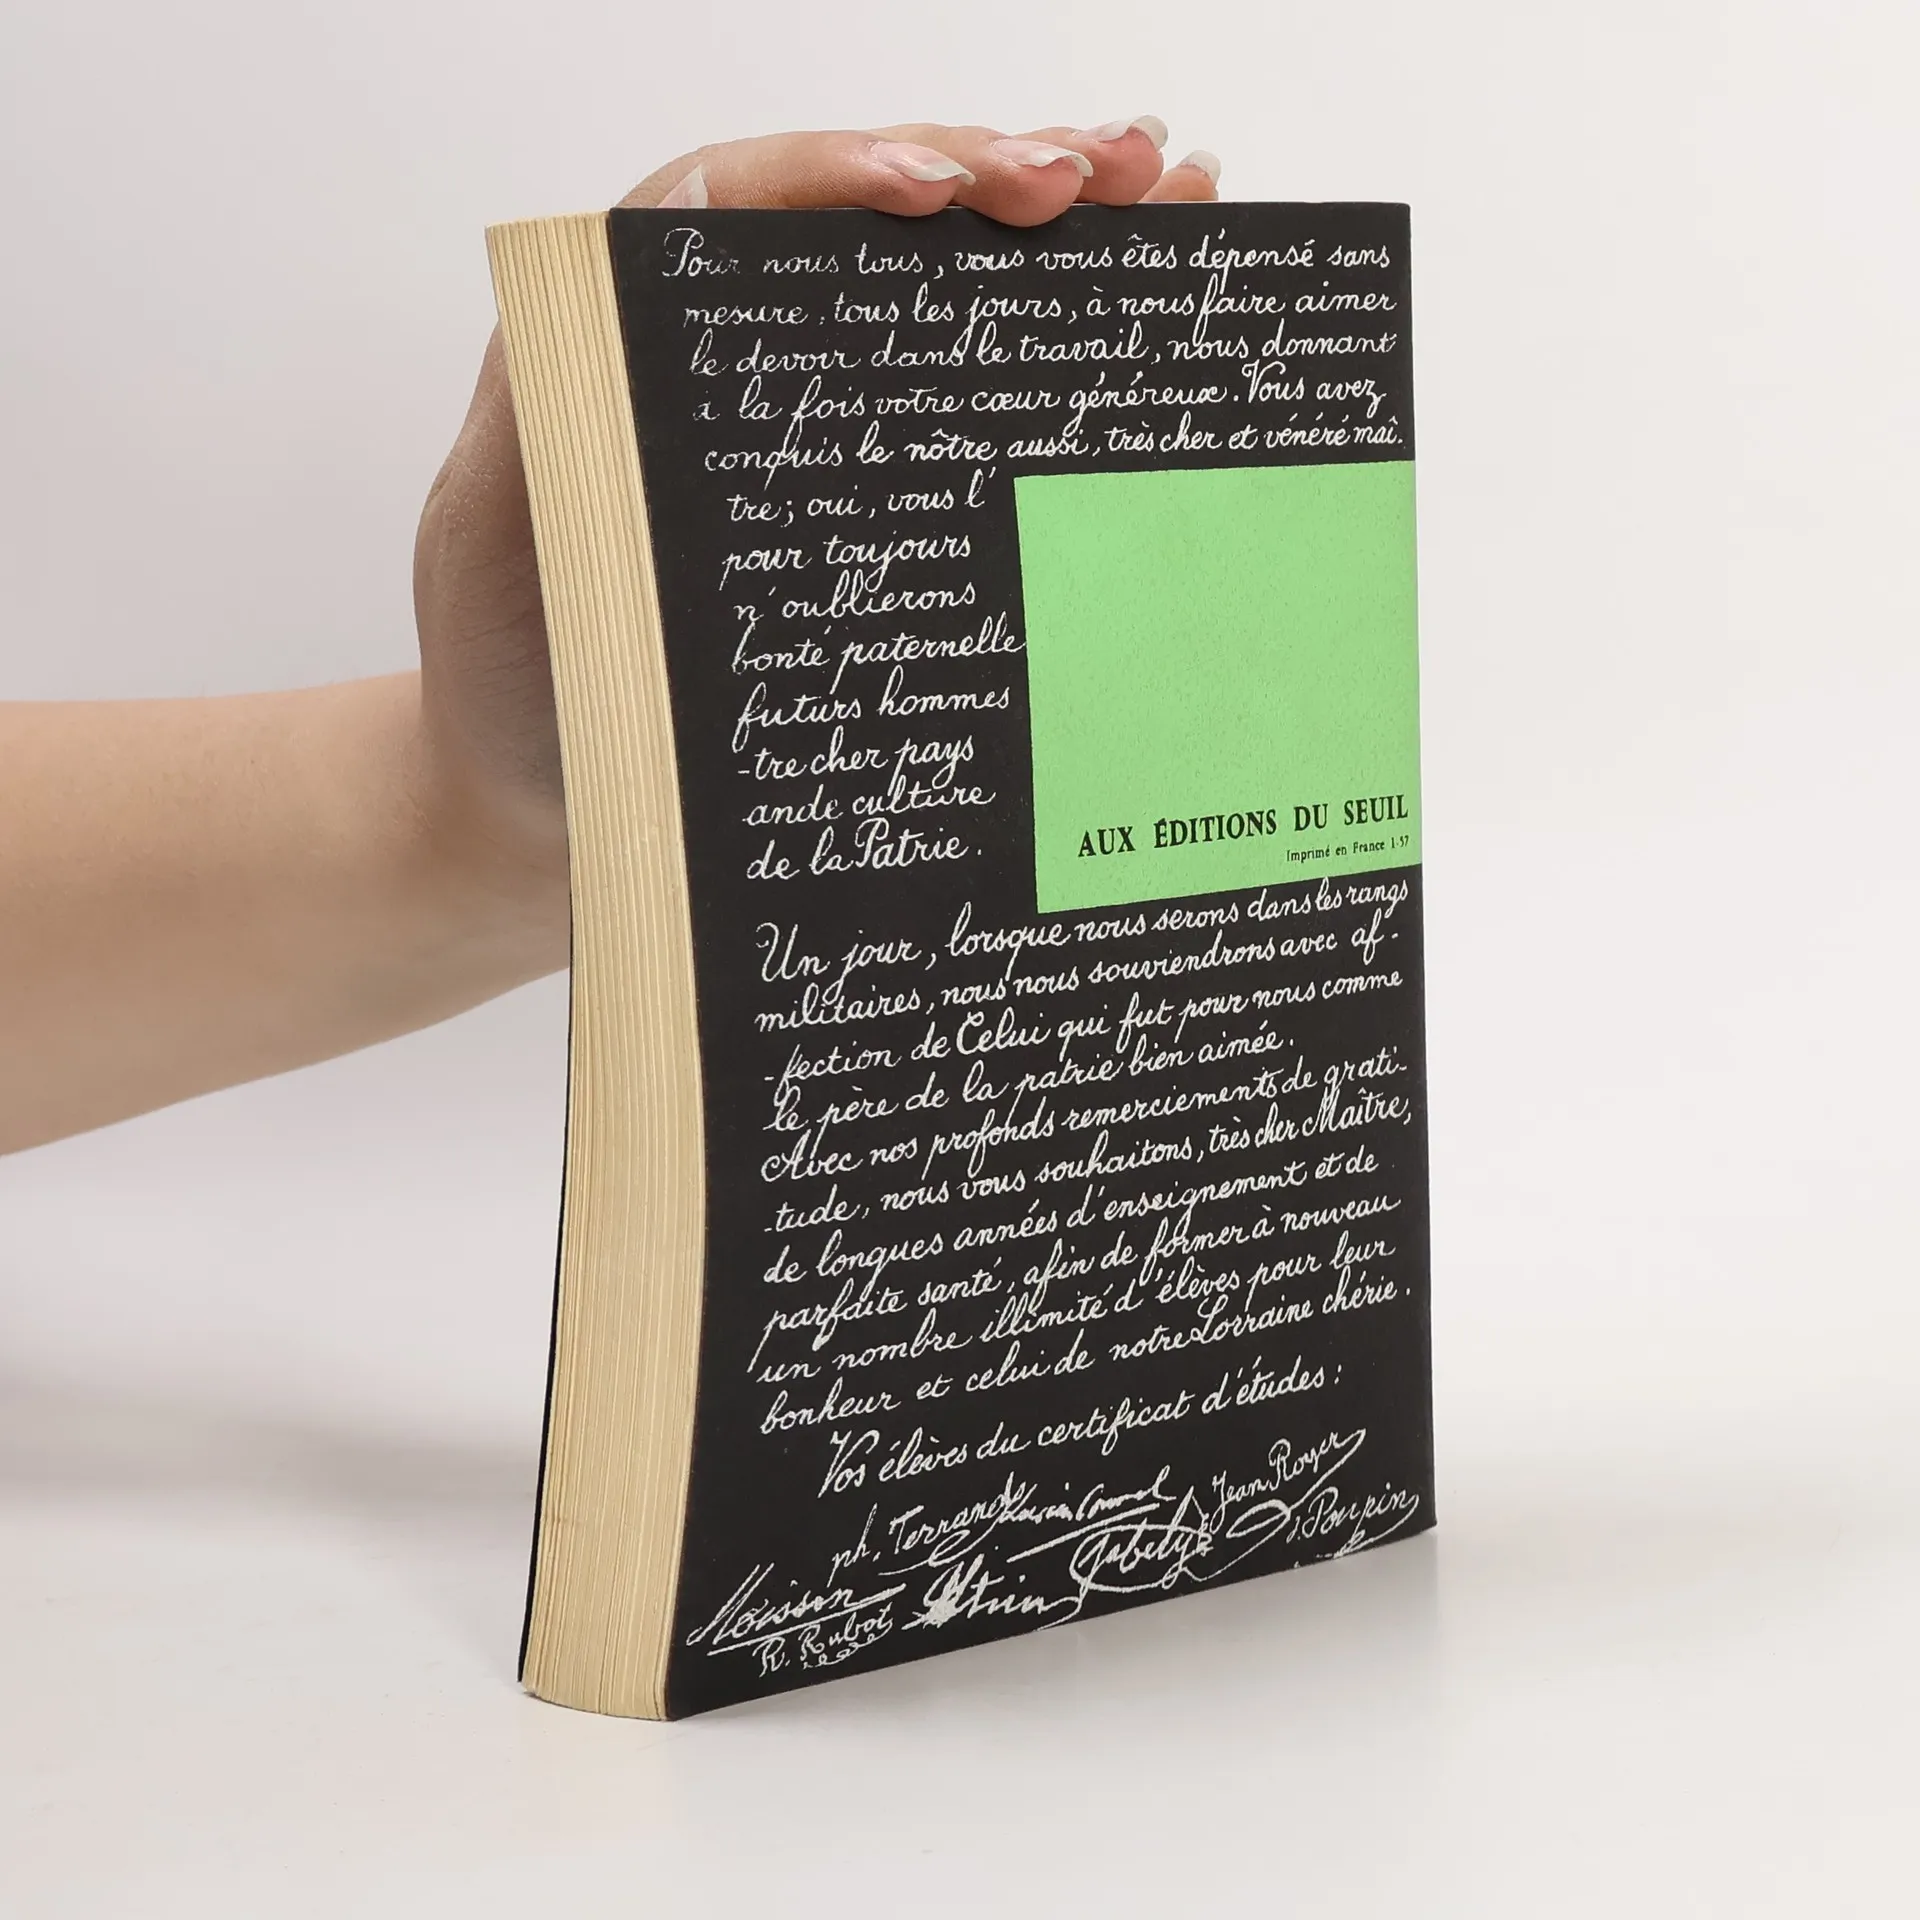 Pour nous tous, vous vous êtes dépensé sans
mesure, tous les jours, à nous faire aimer
le devoir dans le travail, nous donnant
à la fois votre cœur généreux. Vous avez
conquis le nôtre aussi, très cher et vénéré maî.
tre; oui, vous l'
pour toujours
n'oublierons
bonté paternelle
futurs hommes
-tre cher pays
ande culture
de la Patrie.
AUX ÉDITIONS DU SEUIL
Imprimé en France 1-57
Un jour, lorsque nous serons dans les rangs
militaires, nous nous souviendrons avec af-
-fection de Celui qui fut pour nous comme
le père de la patrie bien aimée.
Avec nos profonds remerciements de grati-
-tude, nous vous souhaitons, très cher Maître,
de longues années d'enseignement et de
parfaite santé, afin de former à nouveau
un nombre illimité d'élèves pour leur
bonheur et celui de notre Lorraine chérie.
Vos élèves du certificat d'études:
ph. Terrand Jean Royer
Poupin
Moisson
R. Rubot